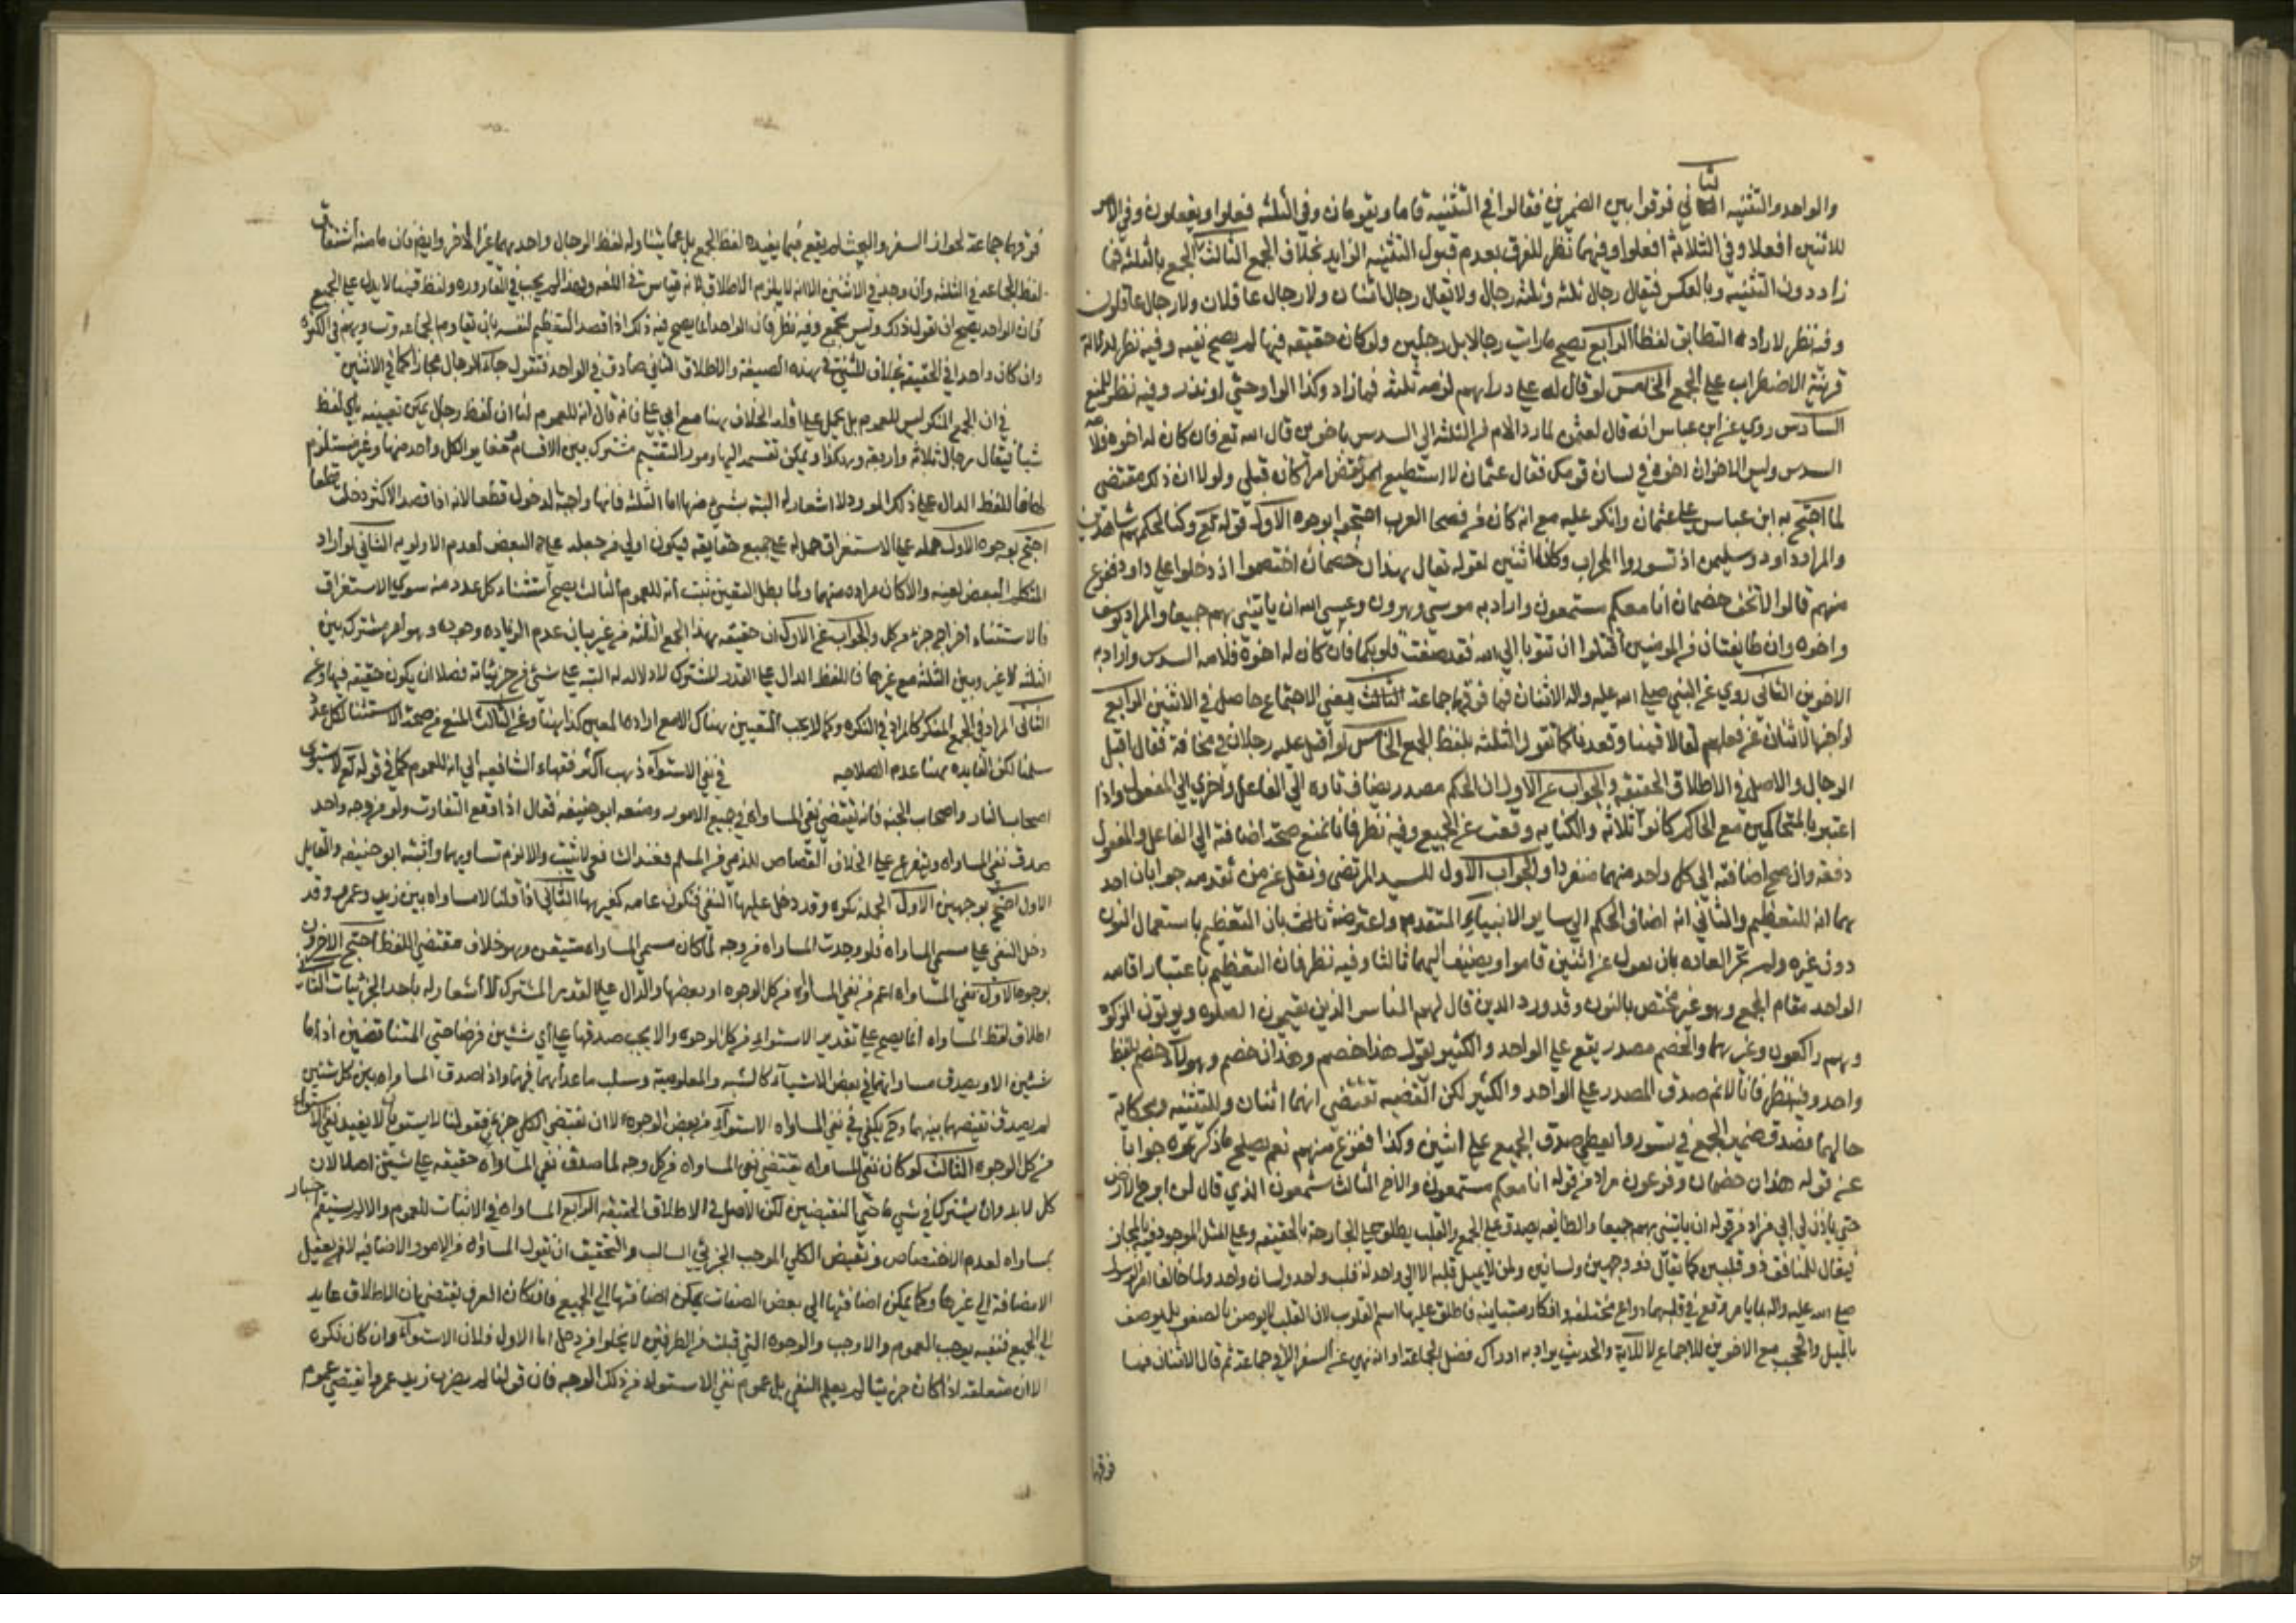 والواحد والتثنيه الثاني فرقوا بين الضميرين فقالوا في التثنية قاما ويقومان وفي الثلثه فعلوا ويفعلون وفي الامر
للاثنين افعلا وفي الثلاثة افعلوا وفيهما نظر للفرق بعدم قبول التثنيه الزايد بخلاف الجمع الثالث الجمع بالثلثة فما
زاد دون التثنيه وبالعكس فيقال رجال ثلثه وثلثه رجال ولا يقال رجال اثنان ولا رجال عاقلان ولا رجلان عاقلون
وفيه نظر لارادة التطابق لفظا الرابع يصح ما رايت رجالا بل رجلين ولو كان حقيقه فيهما لم يصح نفيه وفيه نظر لدلالة
قرينة الاضراب على الجمع الخامس لو قال له علي دراهم لزمه ثلثة فما زاد وكذا لو اوصى او نذر وفيه نظر للمنع
السادس روي عن ابن عباس انه قال لعثمن لما رد الام من الثلث الى السدس باخوين قال الله تع فان كان له اخوة فلامه
السدس وليس الاخوان اخوة في لسان قومك فقال عثمان لا استطيع ان انقض امرا كان قبلي ولولا ان ذلك مقتضى
لما احتج به ابن عباس على عثمان وانكر عليه مع انه كان من فصحا العرب احتجوا بوجوه الاول قوله تع وكنا لحكمهم شاهدين
والمراد داود وسليمن اذ تسوروا المحراب وكانا اثنين لقوله تعالى هذان خصمان اختصموا اذ دخلوا على داود ففزع
منهم قالوا لا تخف خصمان انا معكم مستمعون واراد به موسى وهرون وعسى الله ان ياتيني بهم جميعا والمراد يوسف
واخوه وان طايفتان من المومنين اقتتلوا ان تتوبا الى الله فقد صغت قلوبكما فان كان له اخوة فلامه السدس واراد به
الاخوين الثاني روي عن النبي صلى الله عليه واله الاثنان فما فوقهما جماعة الثالث معنى الاجتماع حاصل في الاثنين الرابع
لو اخبر الاثنان عن فعلهم لقالا قمنا وقعدنا كما تقول الثلثة بلفظ الجمع الخامس لو اقبل عليه رجلان في مخافة فقال اقبل
الرجال والاصل في الاطلاق الحقيقه والجواب عن الاول ان الحكم مصدر يضاف تارة الى الفاعل واخرى الى المفعول واذا
اعتبروا المتحاكمين مع الحاكم كانوا ثلاثة والكنايه وقعت عن الجميع وفيه نظر فانا نمنع صحة اضافته الى الفاعل والمفعول
دفعه وان صح اضافته الى كل واحد منهما منفردا والجواب الاول للسيد المرتضى ونقل عن من تقدمه جوابان احد
هما انه للتعظيم والثاني انه اضاف الحكم الى ساير الانبياء المتقدمه واعترضه ثالث بان التعظيم باستعمال النون
دون غيره ولم تجر العاده بان يعول عن اثنين قاموا ويضيف اليهما ثالثا وفيه نظر فان التعظيم باعتبار اقامه
الواحد مقام الجمع وهو غير مختص بالنون وقد ورد الذين قال لهم الناس الذين يقيمون الصلوه ويوتون الزكوه
وهم راكعون وغيرهما والخصم مصدر يقع على الواحد والكثير يقول هذا خصم وهذان خصم وهولاء خصم بلفظ
واحد وفيه نظر فانا لا نم صدق المصدر على الواحد والكثير لكن القضيه تقتضي انهما اثنان وللتثنيه وحكاية
حالهما فصدق ضمير الجمع في تسوروا يعطي صدق الجميع على اثنين وكذا ففزع منهم نعم يصلح ما ذكر نحوه جوابا
عن قوله هذان خصمان وفرعون مراد من قوله انا معكم مستمعون والاخ الثالث شمعون الذي قال لن ابرح الارض
حتى ياذن لي ابي مراد من قوله ان ياتيني بهم جميعا والطايفه يصدق على الجمع والقلب يطلق على الجارحة بالحقيقه وعلى الميل الموجود فيه بالمجاز
فيقال للمنافق ذو قلبين كما يقال ذو وجهين ولسانين ولمن لا يميل قلبه الا الى واحد له قلب واحد ولسان واحد ولما خالفا امر الرسول
صلى الله عليه واله وقع في قلبهما دواع مختلفه وافكار متباينه فاطلق عليها اسم القلوب لان القلب لا يوصف بالصغو بل يوصف
بالميل والحجب مع الاخوين للاجماع لا للاية والحديث يراد به ادراك فضل الجماعة او انه نهي عن السفر الا في جماعة ثم قال الاثنان فما
فوقها
فوقهما جماعة لجواز السفر والبحث لم يقع فيما يفيده لفظ الجمع بل عما يتناوله لفظ الرجال واحدهما غير الاخر وايض فان ما منه اشتقاق
لفظ الجماعه في الثلثه وان وجد في الاثنين الا انه لا يلزم الاطلاق لانه قياس في اللغه ولهذا لم يجب في القارورة ولفظ قمنا لا يدل على الجمع
فان الواحد يصح ان يقول ذلك وليس بجمع وفيه نظر فان الواحد انما يصح فيه ذلك اذا قصد التعظيم لنفسه بانه يقاوم الجماعه وتساويهم في الكثره
وان كان واحدا في الحقيقه بخلاف المثنى بهذه الصيغة والاطلاق الثاني صادق في الواحد فتقول جاء الرجال مجازا كما في الاثنين
في ان الجمع المنكر ليس للعموم بل يحمل على اقله الخلاف هنا مع ابي علي فانه قال انه للعموم لنا ان لفظ رجال يمكن تعيينه باي لفظ
شيا فيقال رجال ثلاثه واربعه وهكذا ويمكن تقسيمه اليها ومورد التقسيم مشترك بين الاقسام مغاير لكل واحد منها وغير مستلزم
لها فاللفظ الدال على ذلك المورد لا اشعار له البته بشيء منها اما الثلثه فانها واجبة الدخول قطعا لانه اذا قصد الاكثر دخلت قطعا
احتج بوجوه الاول حمله على الاستغراق حمل له على جميع حقايقه فيكون اولى من حمله على البعض لعدم الاولويه الثاني لو اراد
المتكلم البعض لعينه والا كان مراده منهما ولما بطل التعين ثبت انه للعموم الثالث يصح استثناء كل عدد منه سوى الاستغراق
فالاستثناء اخراج جزء من كل والجواب عن الاول ان حقيقه هذا الجمع الثلثه من غير بيان عدم الزياده وجوده وهو امر مشترك بين
الثلثه لا غير وبين الثلثه مع غيرها فاللفظ الدال على القدر المشترك لا دلاله له البته على شيء من جزئياته فضلا ان يكون حقيقه فيها وعن
الثاني المراد في الجمع المنكر كالمراد في النكره وكما لا يجب التعيين هناك الا مع ارادة المعين كذا هنا وعن الثالث المنع من صحة الاستثناء لكل عدد
سلمنا لكن الفايده هنا عدم الصلاحيه في نفي الاستواء ذهب اكثر فقهاء الشافعيه الى انه للعموم كما في قوله تع لا يستوي
اصحاب النار واصحاب الجنه فانه يقتضي نفي المساواة في جميع الامور ومنعه ابو حنيفه فقال اذا وقع التفاوت ولو من وجه واحد
صدق نفي المساواه ويتفرع على الخلاف القصاص للذمي من المسلم فعند الشافعي لا يثبت والا لزم تساويهما واثبته ابو حنيفه والقايل
الاول احتج بوجهين الاول الجمله نكره وقد دخل عليها النفي فتكون عامه كغيرها الثاني اذا قلنا لا مساواه بين زيد وعمرو فقد
دخل النفي على مسمى المساواه فلو وجدت المساواه من وجه لما كان مسمى المساواه منتفيا وهو خلاف مقتضى اللفظ احتج الاخرون
بوجوه الاول نفي المساواه اعم من نفي المساواه من كل الوجوه او بعضها والدال على القدر المشترك لا اشعار له باحد الجزئيات الثاني
اطلاق لفظ المساواه انما يصح على تقدير الاستواء من كل الوجوه والا يجب صدقها على اي شيئين فرضا حتى المتناقضين اذ ما
من شيئين الا ويصدق مساواتهما في بعض الاشياء كالشيئيه والمعلوميه وسلب ما عداهما فيهما واذا صدق المساواه بين كل شيئين
لم يصدق نقيضها بينهما وح يكفي في نفي المساواه الاستواء من بعض الوجوه لان نقيض الكلي جزئي فقولنا لا يستويان لا يفيد نفي الاستواء
من كل الوجوه الثالث لو كان نفي المساواه يقتضي نفي المساواه من كل وجه لما صدق نفي المساواه حقيقه على شيئين اصلا لان
كل لا بد وان يشتركا في شيء ما حتى النقيضين لكن الاصل في الاطلاق الحقيقه الرابع المساواه في الاثبات للعموم والا لم يستقم اخبار
بمساواه لعدم الاختصاص ونقيض الكلي الموجب الجزئي السالب والتحقيق ان نقول المساواه من الامور الاضافيه لا تعقل
الا مضافة الى غيرها وكما يمكن اضافتها الى بعض الصفات يمكن اضافتها الى الجميع فان كان العرف يقتضي بان الاطلاق عايد
الى الجميع فنفيه يوجب العموم والا وجب والوجوه التي قيلت من الطرفين لا يخلوا من دخل اما الاول فلان الاستواء وان كان نكره
الا ان متعلقه اذا كان جزئيا لم يعلم النفي بل عموم نفي الاستواء من ذلك الوجه فان قولنا لم يضرب زيد عمروا يقتضي عموم